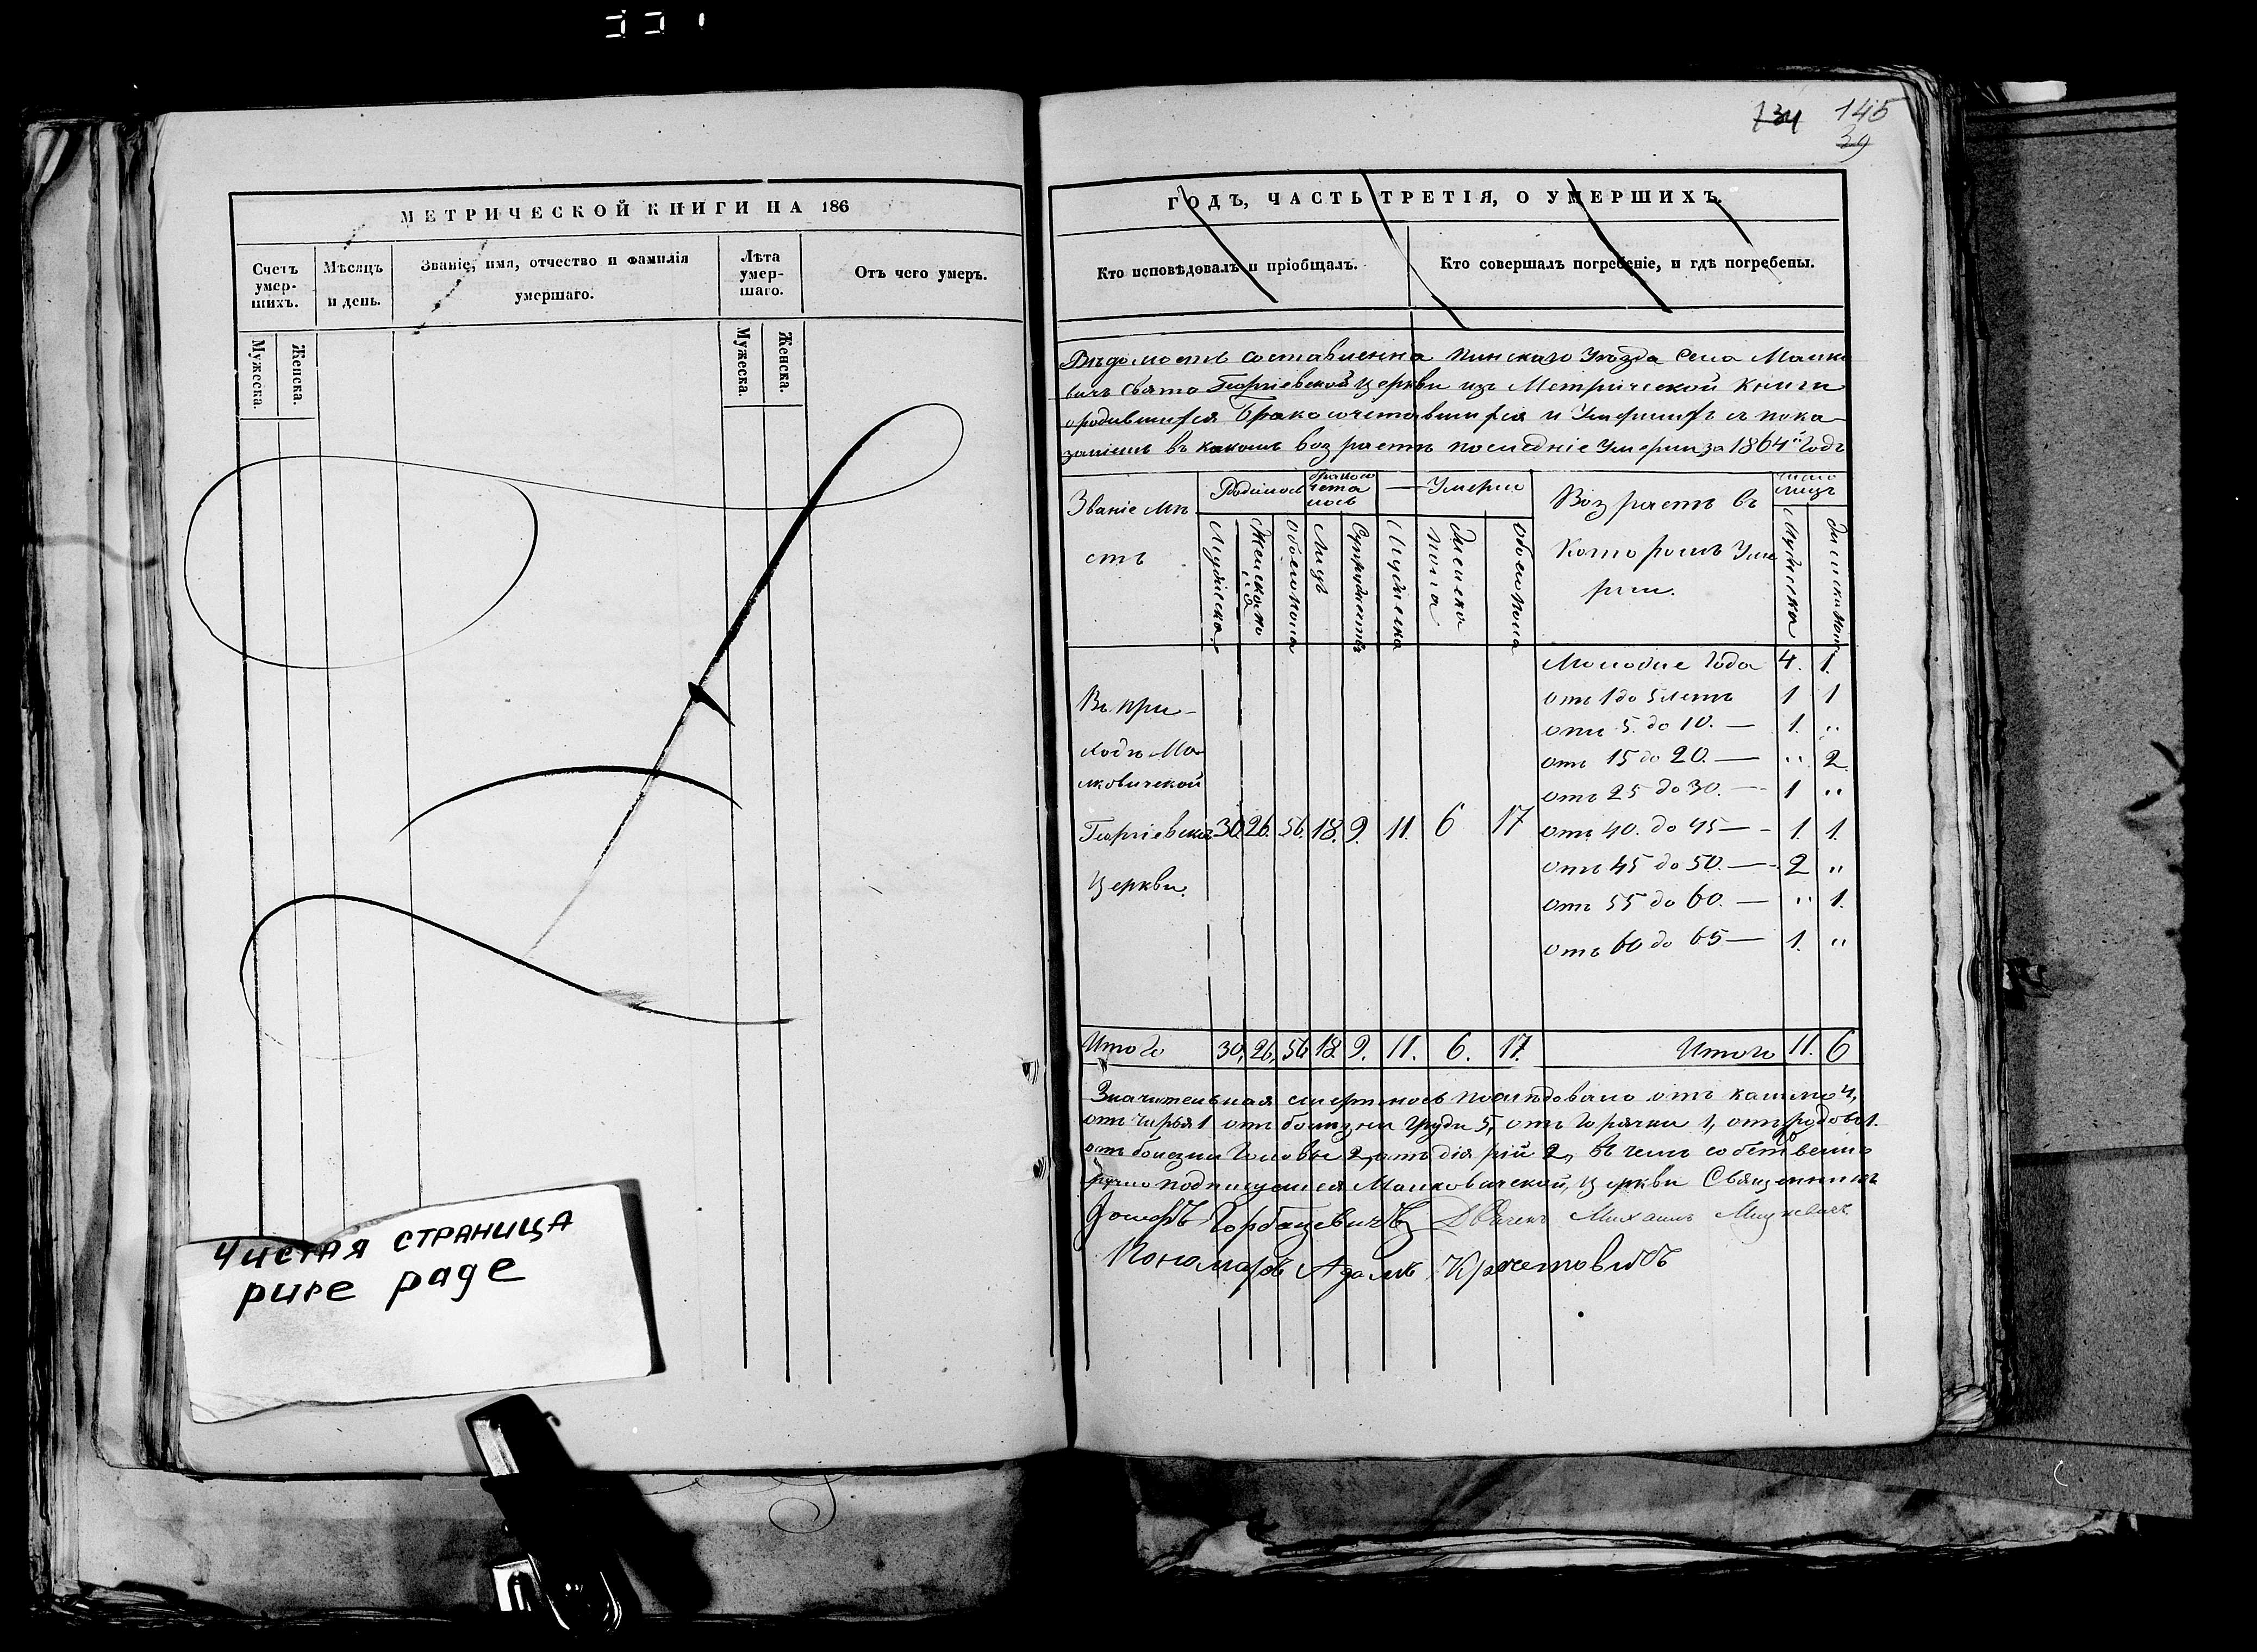 МЕТРИЧЕСКОЙ КНИГИ НА 186
Счетъ умерших. Мѣсяцъ и день. Званіе, имя, отчество и фамилія умершаго. Лѣта умершаго. Отъ чего умеръ.
Мужеска. Женска. Мужеска. Женска.
Чистая страница
pure page
134 145
39
ГОДЪ, ЧАСТЬ ТРЕТІЯ, О УМЕРШИХЪ.
Кто исповѣдовалъ и пріобщалъ. Кто совершалъ погребеніе, и гдѣ погребены.
Вѣдомость составленна Пинскаго Уѣзда Села Малько
вичъ Свято Георгіевской Церкви изъ Метрической Книги
о родившихся Бракосочетавшихся и Умершихъ съ пока
заніемъ въ какомъ возрастѣ последніе Умерли за 1864й Годъ
Званіе мѣ
стъ
Родилось
Бракосо
чета
лось
Умерло
Возрастъ въ
Которомъ Уме
рли.
Число
лицъ
Мужеска Женска Обоего пола Лицъ Супружествъ Мужеска Женска пола Обоего пола Мужеска Женска
Молодие Года 4. 1.
отъ 1 до 5 летъ 1 1
отъ 5. до 10. — 1. "
отъ 15 до 20. — " 2.
отъ 25 до 30. — 1 "
отъ 40. до 45 — 1. 1.
отъ 45 до 50. — 2 "
отъ 55 до 60. — " 1.
отъ 60 до 65 — 1. "
Въ при-
ходѣ Ма
лковичской
Георгіевской 30. 26. 56. 18. 9. 11. 6 17
Церкви.
Итого 30. 26. 56 18. 9. 11. 6. 17. Итого 11. 6
Значительная смертность последовала отъ кашлю 4,
отъ чирья 1 отъ болезни груди 5, отъ Горячки 1, отъ родовъ 1.
отъ болезни Головы 2, отъ діярій 2, въ чемъ собственно
ручно подписуемся Малковичской, Церкви Священникъ
Іосифъ Горбацевичъ Дьячекъ Михаилъ Мицкевичъ
Пономаръ Адамъ